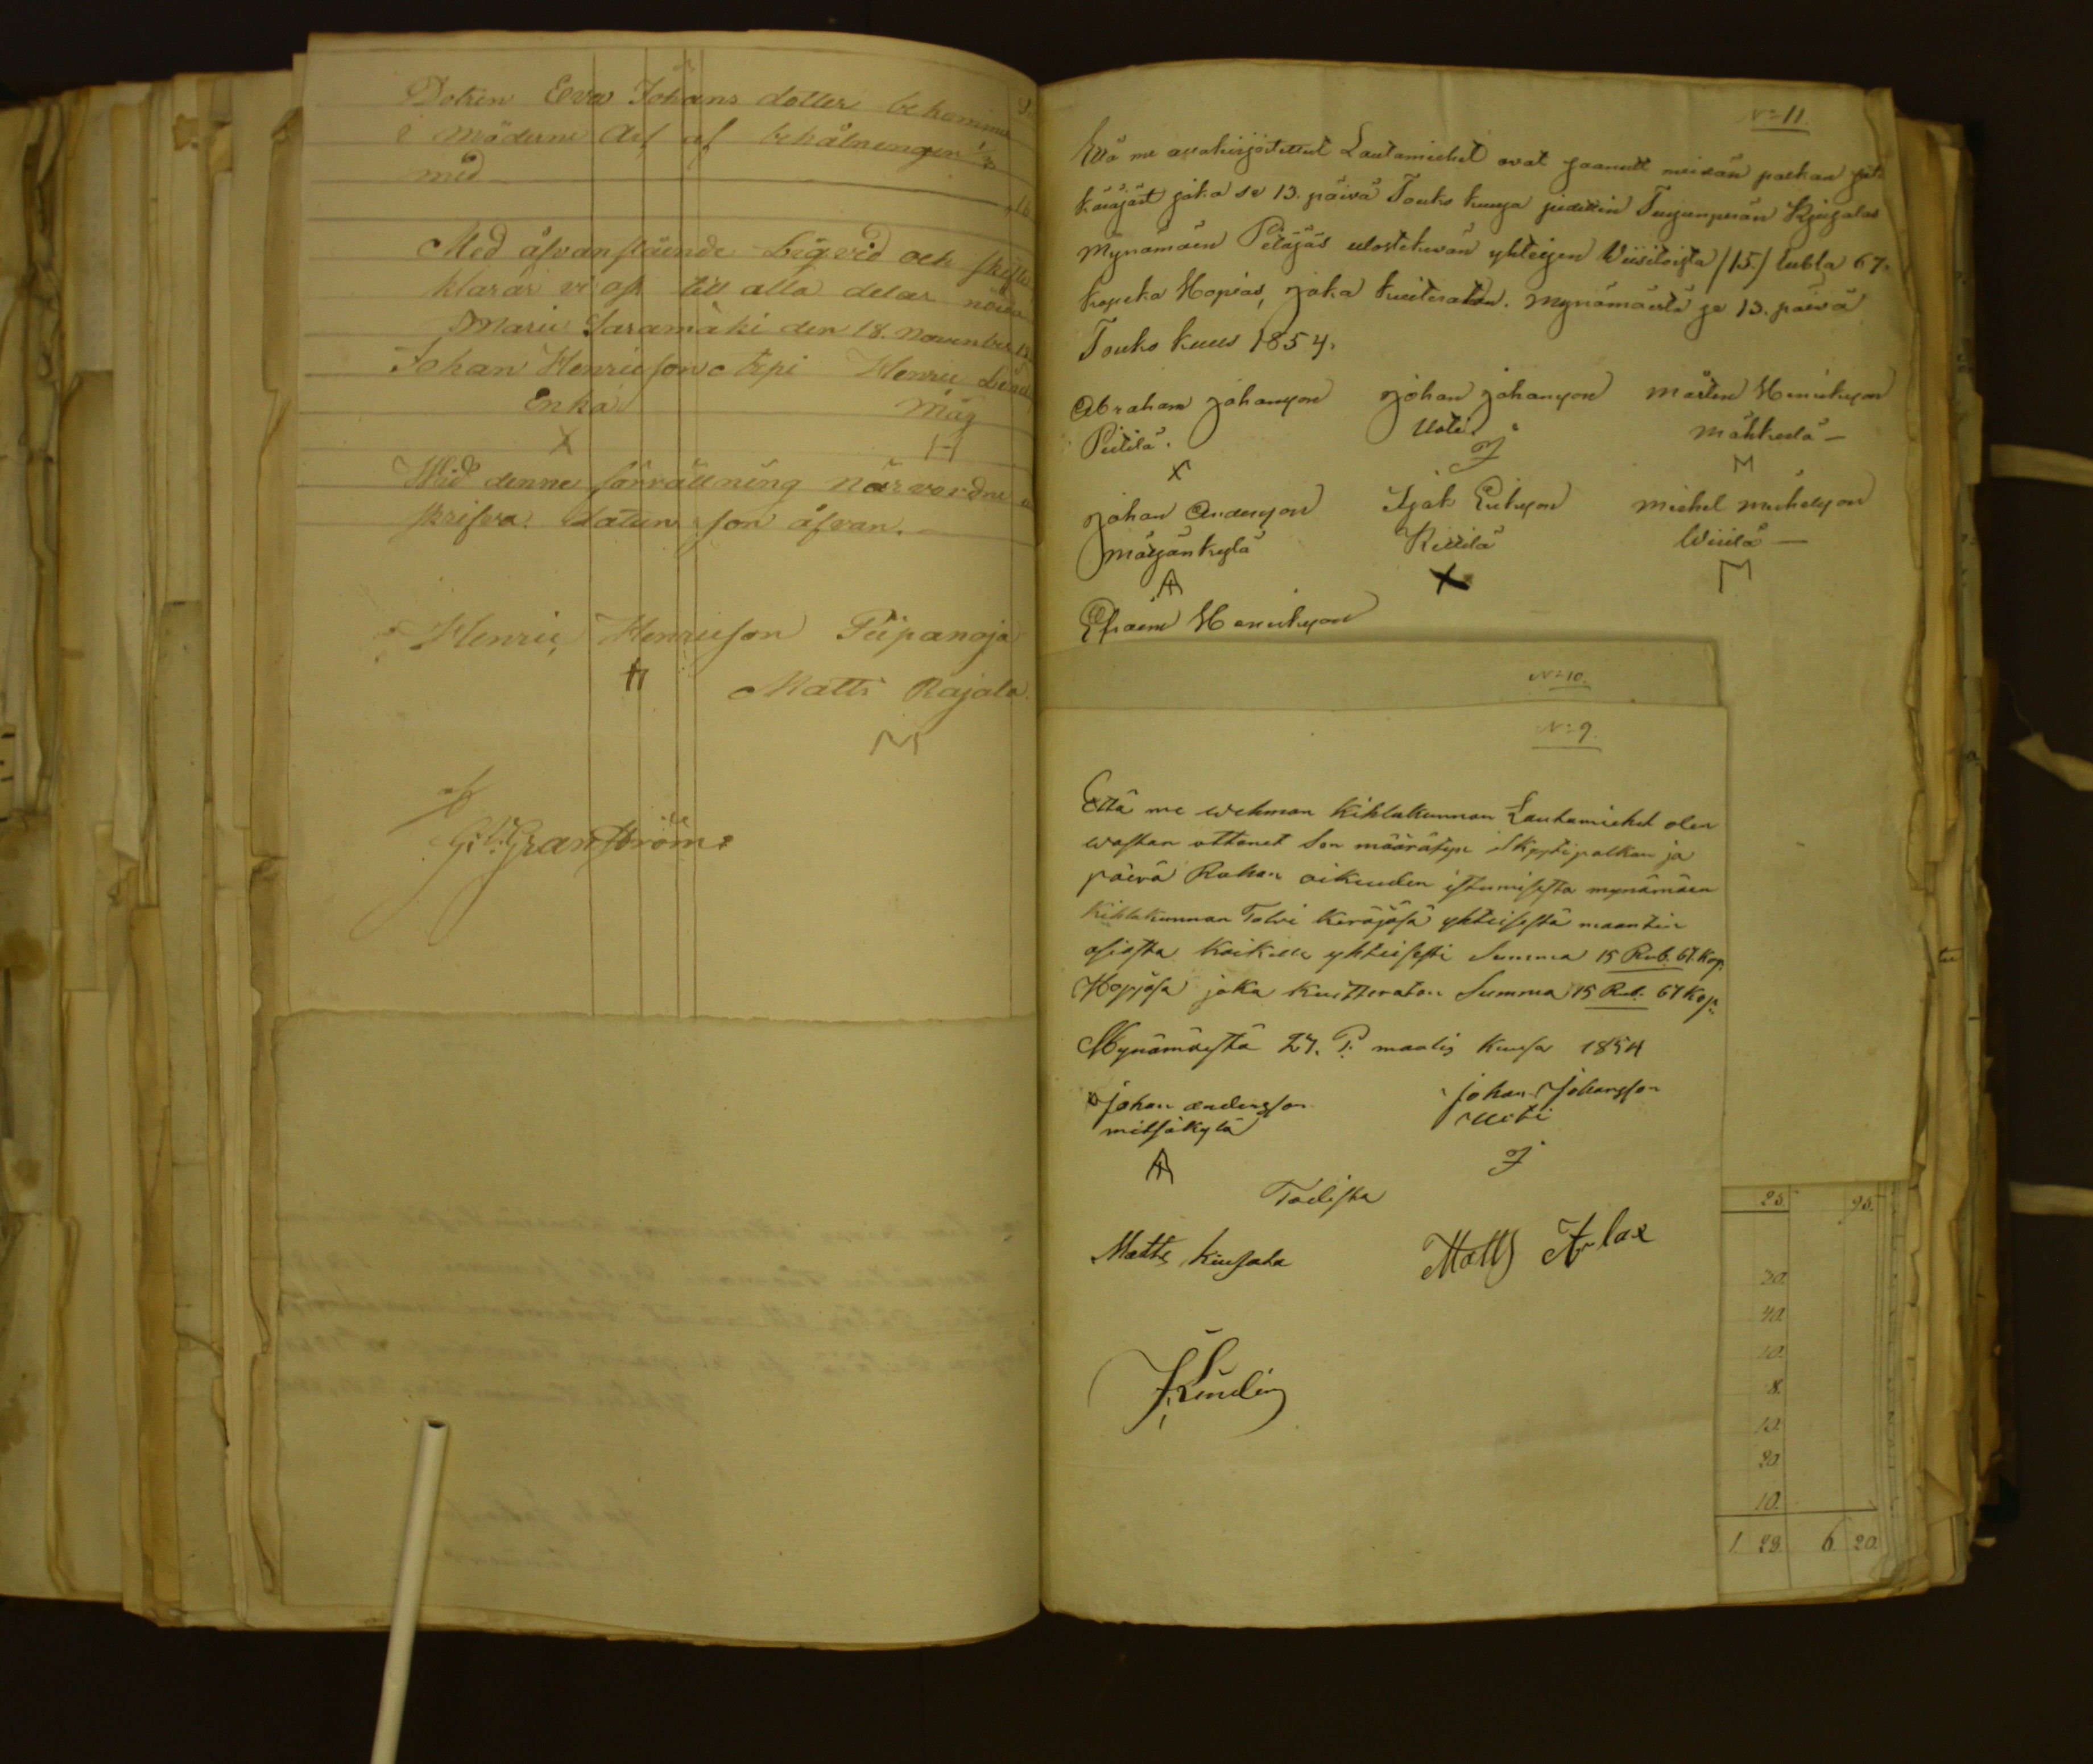 Dotren Eva Johans dotter bekommer
i möderne Arf af behålningen 1/3
med
Med åfvanstående bigvid och skifte
klarar vi oss till alla delar nöida
Marie Saramäki den 18. November
Johan Henricson Erpi Henric
Enka Måg
X H
Wid denne förrättning närvordne
skrifva datum som åfvan.
Henric Henricson Piipanoja
H Matti Rajala
M
af
G. V. Granström
N:o 11
Että me allakirjoitettut Lautamiehet ovat saanutt meidän palkan
käräjäst joka se 13. päivä Touko kuusa pidettin
Mynämäen Pitäjäs ulostekevän yhteisen Wiisitoista /15./ rubla 67.
kopeka Hopias, joka kuiteratan. Mynämäestä se 13. päivä
Touko kuus 1854.
Abraham Johansson Johan Johansson Mårten Henriksson
Piitilä. Uoti. Mähkeelä
X J M
Johan Andersson Isak Eriksson Michel Michelsson
Kiellilä Wiiila
A X M
Efraim Henriksson
N:o 10.
N:o 9.
Että me wehman kihlakunnan Lautamiehet olen
wastan ottanet sen määrätyn Skysti palkan ja
päivä Rahan oikeuden istumisesta mynämäen
kihlakunnan Talvi käräjäsä yhteisestä maantien
asiasta kaikille yhteisesti Summa 15 Rub. 67 kop.
Hopjasa joka kuitteratan Summa 15 Rub. 67 Kop:
Mynämäestä 27. P. maalis kuusa 1854
johan andersson johan Johansson
mitsäkylä Uoti
A J
Todista
Matts Kiusala Matts Arlax
J. Lindin
25. 95.
20.
40.
10.
8.
10.
20.
10.
1. 29. 6. 20.